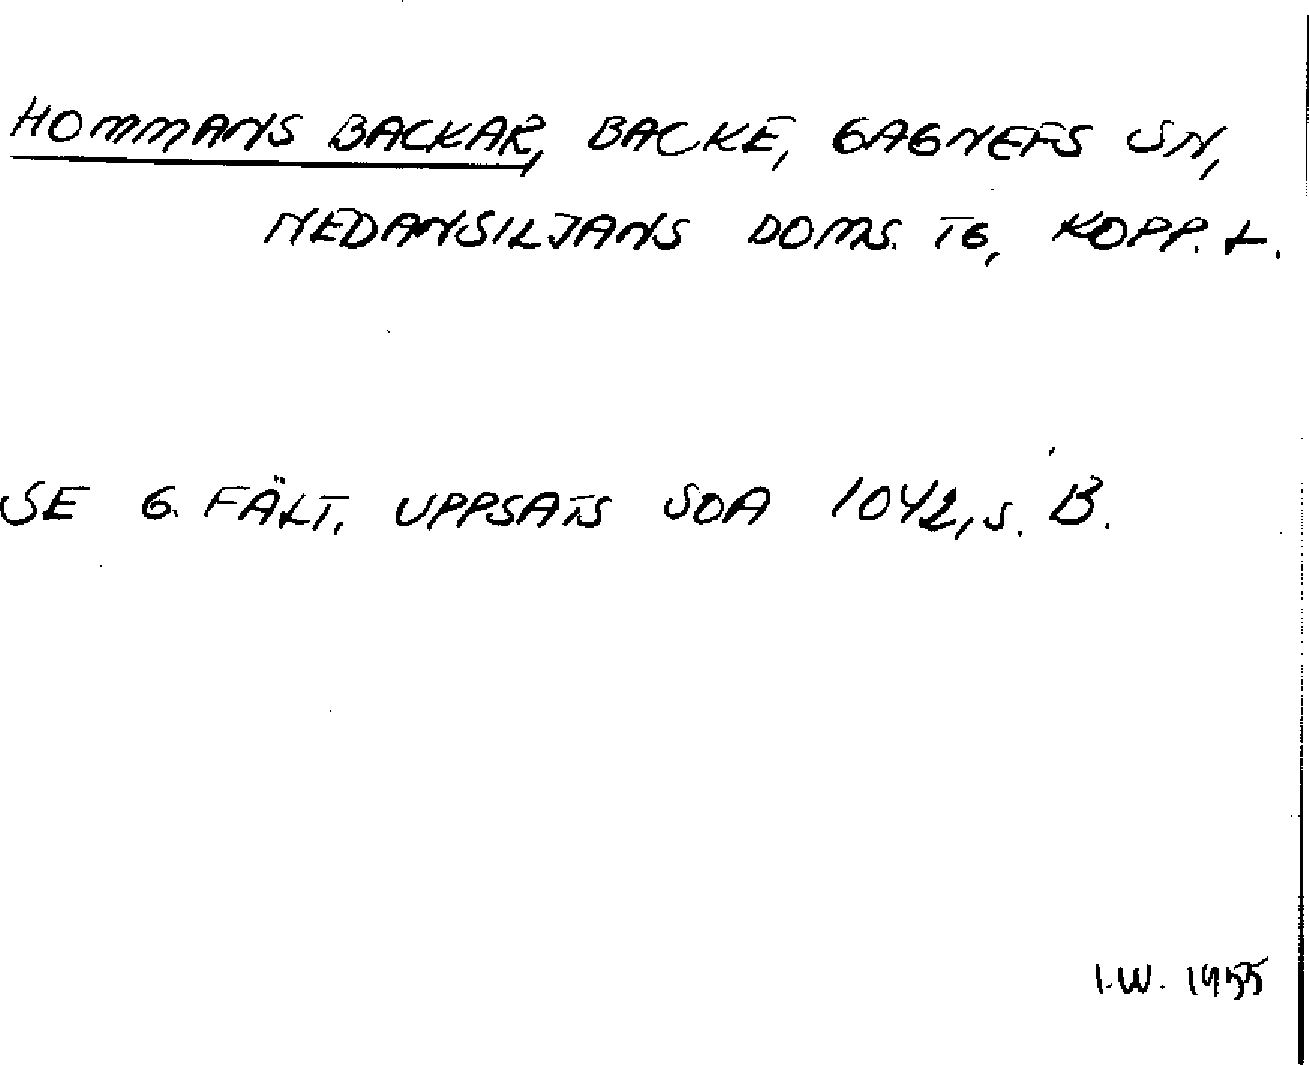 HOMMANS BACKAR, BACKE, GAGNEFS SN,
NEDANSILJANS DOMS. TG, KOPP. L.
SE G. FÄLT, UPPSATS SOA 1042, s. B.
I.W. 1955